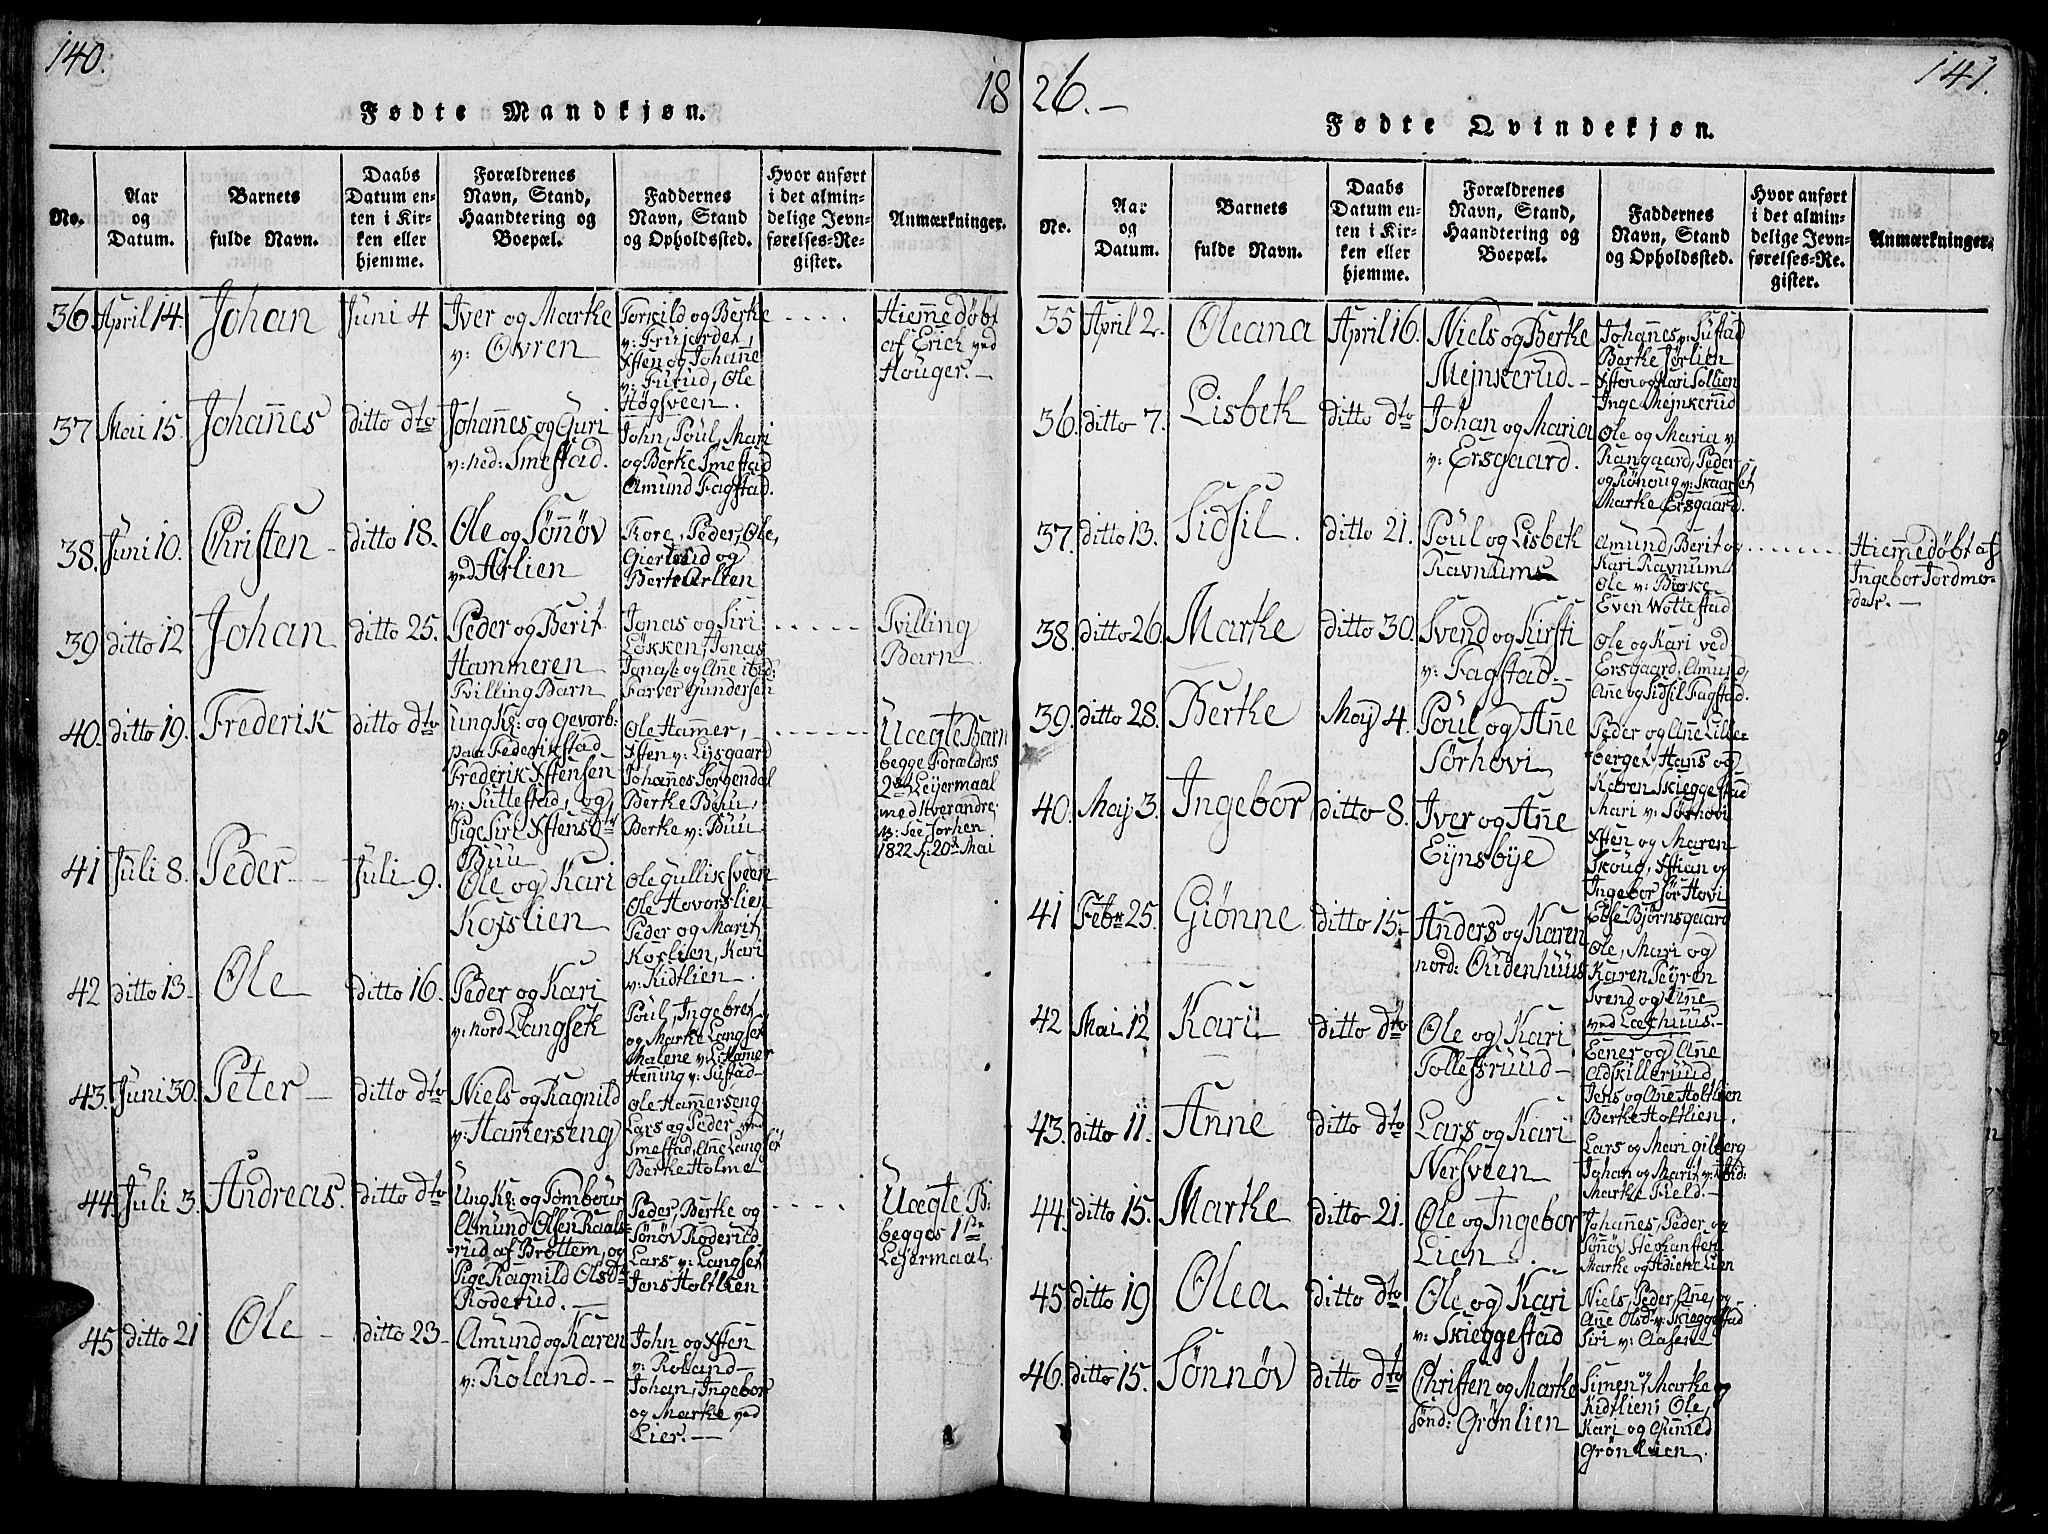 140.
18
Fødte Mandkjøn.
No.
Aar
og
Datum.
Barnets
fulde Navn.
Daabs
Datum en-
ten i Kir-
ken eller
hjemme.
Forældrenes
Navn, Stand,
Haandtering og
Boepæl.
Faddernes
Navn, Stand
og Opholdssted.
Hvor anført
i det almin-
delige Jevn-
førelses-Re-
gister.
Anmærkninger.
36 April 14. Johan Juni 4
Iver og Marke
v: Øvren
Torkild og Berke
v: Frujorden,
Xsten og Johane
v: Furud, Ole
Høgsveen.
Hiemedøbt
af Erich ved
Houger.-
37 Mai 15. Johannes ditto dto
Johannes og Guri
v: ned: Smestad.
John, Poul, Mari
og Berke Smestad
Amund Fagstad.
38. Juni 10. Christen ditto 18.
Ole og Sønnøv
ved Arlien
Tore, Peder, Ole,
Gierlud og
Berte Arlien
39 ditto 12 Johan ditto 25.
Peder og Berit
Hammeren
Tvilling Barn
Jonas og Siri
Løkken, Jonas
Jonas: og Ane ibid:
Farver Gundersen
Tvilling
Barn.
40. ditto 19. Frederik ditto dto
Ung K: og Gevorb:
paa Federikstad
Frederik Xstensen
v: Suttestad, og
Pige Siri Xstensdtr
Buu
Ole Hammer,
Xsten v: Lysgaard
Johannes Jørgendal
Berke Buu,
Berke v: Buu
Uægte Barn
begge Forældres
2det Leyermaal
med hverandre,
v: See Jorhen
1822 k: 20de Mai
41 Juli 8. Peder Juli 9.
Ole og Kari
Koxslien
Ole Gulliksveen
Ole Hovorslien
Peder og Marit
Koxslien, Kari
v: Kidtlien.
42 ditto 13 Ole ditto 16.
Peder og Kari
v: nord Langsek
Poul, Ingebret
og Marke Langsek
Malene v: L:Hamer
Henning v: Sustad
43. Juni 30. Peter ditto dto
Niels og Ragnild
v: Hamerseng
Ole Hamerseng
Lars og Peder ved
Smestad, Ane Langsek
Berke Holme
44 Juli 3. Andreas. ditto dto
Ung K: og Tombour
Amund Olsen Raals-
rud af Brøttem, og
Pige Ragnild Olsdtr
Roderud.
Peder, Berke og
Sønøv Roderud
Lars v: Langset
Jens Holtlien
Uægte B:
begges 1ste
Leiermaal.
45 ditto 21 Ole ditto 23
Amund og Karen
v: Roland.-
John og Xsten
v: Rolland
Johan, Ingebor
og Marke ved
Lier.-
26.-
141.
Fødte Qvindekjøn.
No.
Aar
og
Datum.
Barnets
fulde Navn.
Daabs
Datum en-
ten i Kir-
ken eller
hjemme.
Forældrenes
Navn, Stand,
Haandtering og
Boepæl.
Faddernes
Navn, Stand
og Opholdssted.
Hvor anført
i det almin-
delige Jevn-
førelses-Re-
gister.
Anmærkninger.
35 April 2. Oleana April 16.
Niels og Berke
Mejnkerud.
Johannes v: Sustad
Berke Jørlien
Xsten og Kari Sollien
Inge Mejnkerud
36. ditto 7. Lisbeth ditto dto
Johan og Maria
v: Ersgaard.
Ole og Maria v:
Rangaard, Peder
og Rønoug v: Skaarset,
Marke Ersgaard.
37. ditto 13. Sidsil. ditto 21.
Poul og Lisbek
Ravnums
Amund, Berit og
Kari Ravnum
Ole v: Birke
Even Wottestad
Hiemmedøbt af
Ingebor Jordmo-
der.-
38. ditto 26. Marke ditto 30.
Svend og Kirsti
v: Fagstad.-
Ole og Kari ved
Ersgaard, Amund,
Ane og Sidsil Fagstad.
39. ditto 28. Berke May 4.
Poul og Anne
Sørhovi
Peder og Ane Lille-
berget, Hans og
Karen Skieggestad
Mari v: Sørhovi
40. May 3. Ingebor ditto 8.
Iver og Anne
Eynsbye
Xsten og Maren
Skoug, Xstian og
Ingebor Sør Hovi
Else Bjørnsgaard
41 Febr 25. Giønne ditto 15.
Anders og Karen
nord: Oudenhuus
Ole, Mari og
Karen Seyren
Svend og Ane
ved Laxhuus.
42 Mai 12 Kari ditto dto
Ole og Kari
Tollefsruud
Eener og Ane
Adskilleruud
Jens og Ane Holtlien
Berke Holtlien.
43. ditto 11. Anne ditto dto
Lars og Kari
Nersveen
Lars og Mari Gilberg
Johan og Marit v: ibid:
Marke Field.
44. ditto 15. Marke ditto 21.
Ole og Ingebor
Lien.
Johannes, Peder, og
Sønøv Stephansten
Marke og Adiene Lien
45 ditto 19 Olea ditto dto
Ole og Kari
v: Skieggestad
Niels, Peder, Ane, og
Ane Olsd: v: Skieggestad
Siri v: Aasen
46. ditto 15. Sønnøv ditto dto
Christen og Marke
sønd: Grønlien
Simen og Marke
Kidtlien, Ole,
Kari og Gunild
Grønlien.